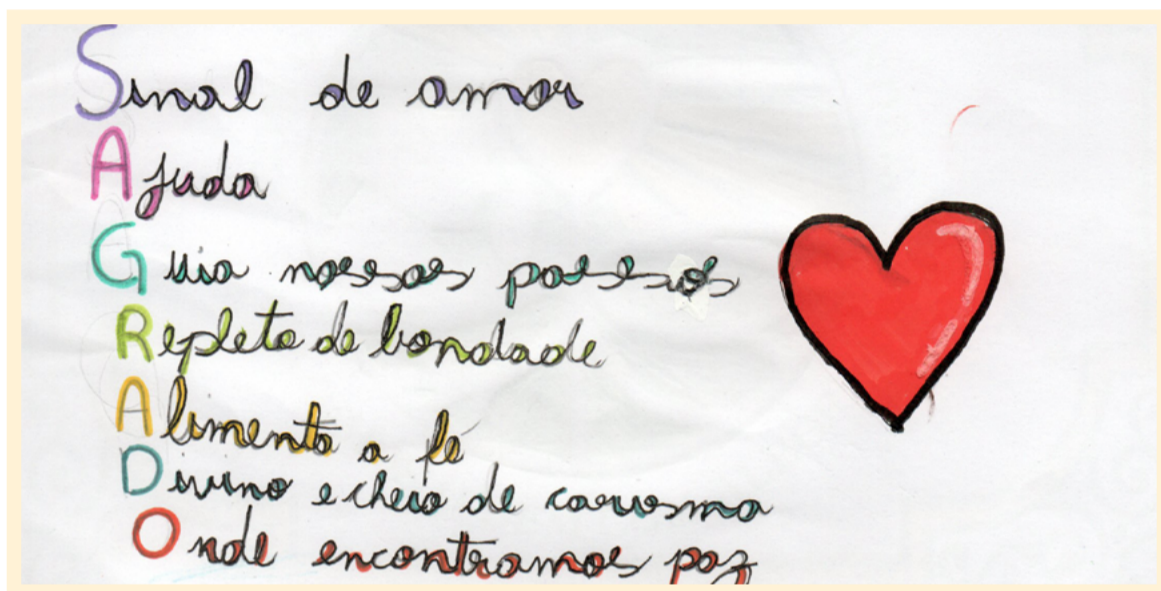 Sinal de amor
Ajuda
Guia nossos passos
Repleto de bondade
Alimenta a fé
Divino e cheio de carisma
Onde encontramos paz